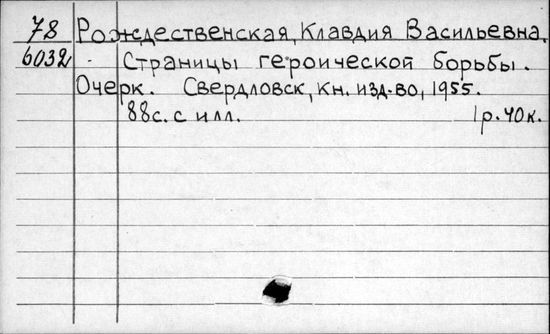 78 Рождественская, Клавдия Васильевна.
6032 - Страницы героической борьбы.
Очерк. Свердловск, Кн. изд-во, 1955.
88с. с илл. 1р.40к.